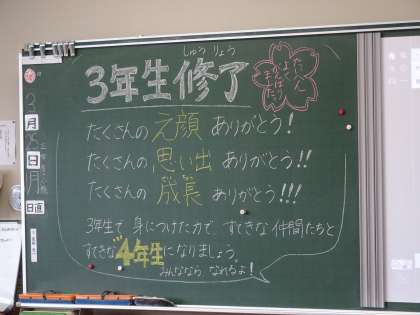 しゅうりょう
3年生修了
たいへん
よく
がんばり
ました
たくさんの 元顔 ありがとう!
たくさんの 思い出 ありがとう!!
たくさんの 成長 ありがとう!!!
3年生で 身につけた力で、すてきな 仲間たちと
すてきな "4年生"になりましょう。
みんななら なれるよ!
3
月
日
月
日直